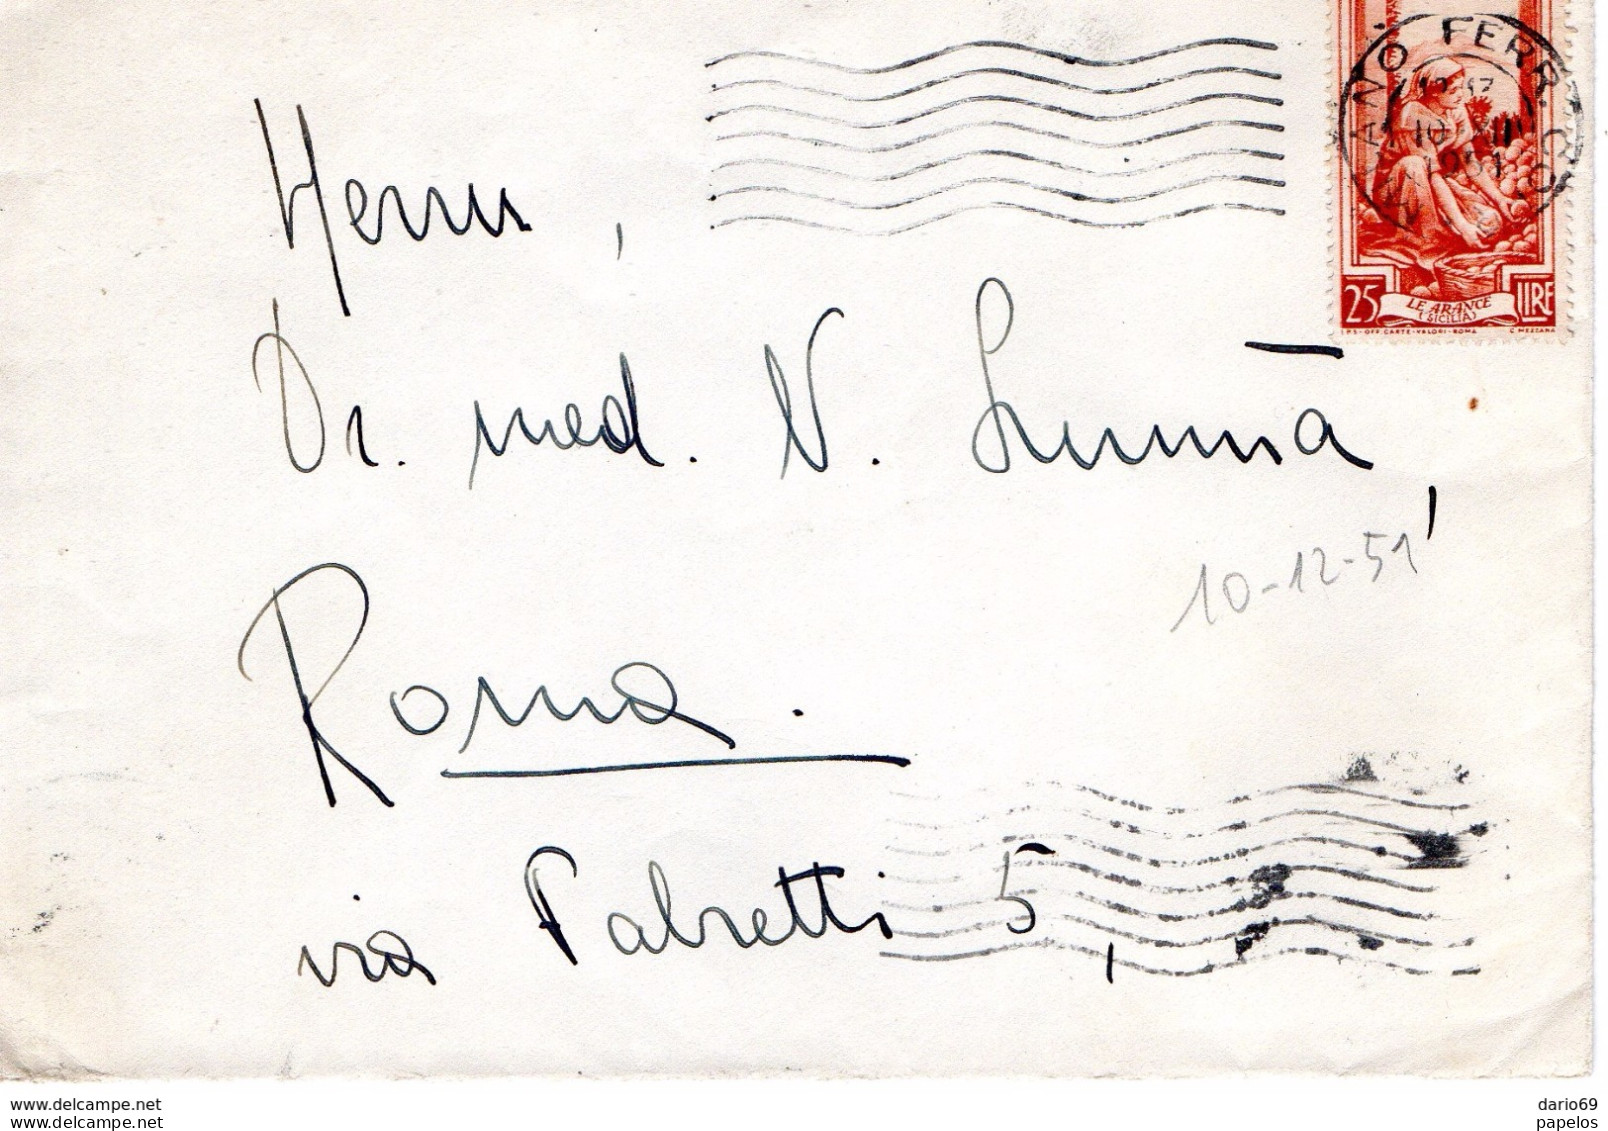 MILANO FERR. CORR.
10 XII
1951
25 LE ARANCE LIRE
(SICILIA)
I.P.S-OFF.CARTE-VALORI-ROMA C. MEZZANA
Herrn ,
Dr. med. N.
10-12-51
Roma .
via 5 ,
www.delcampe.net
www.delcampe.net
dario69
papelos